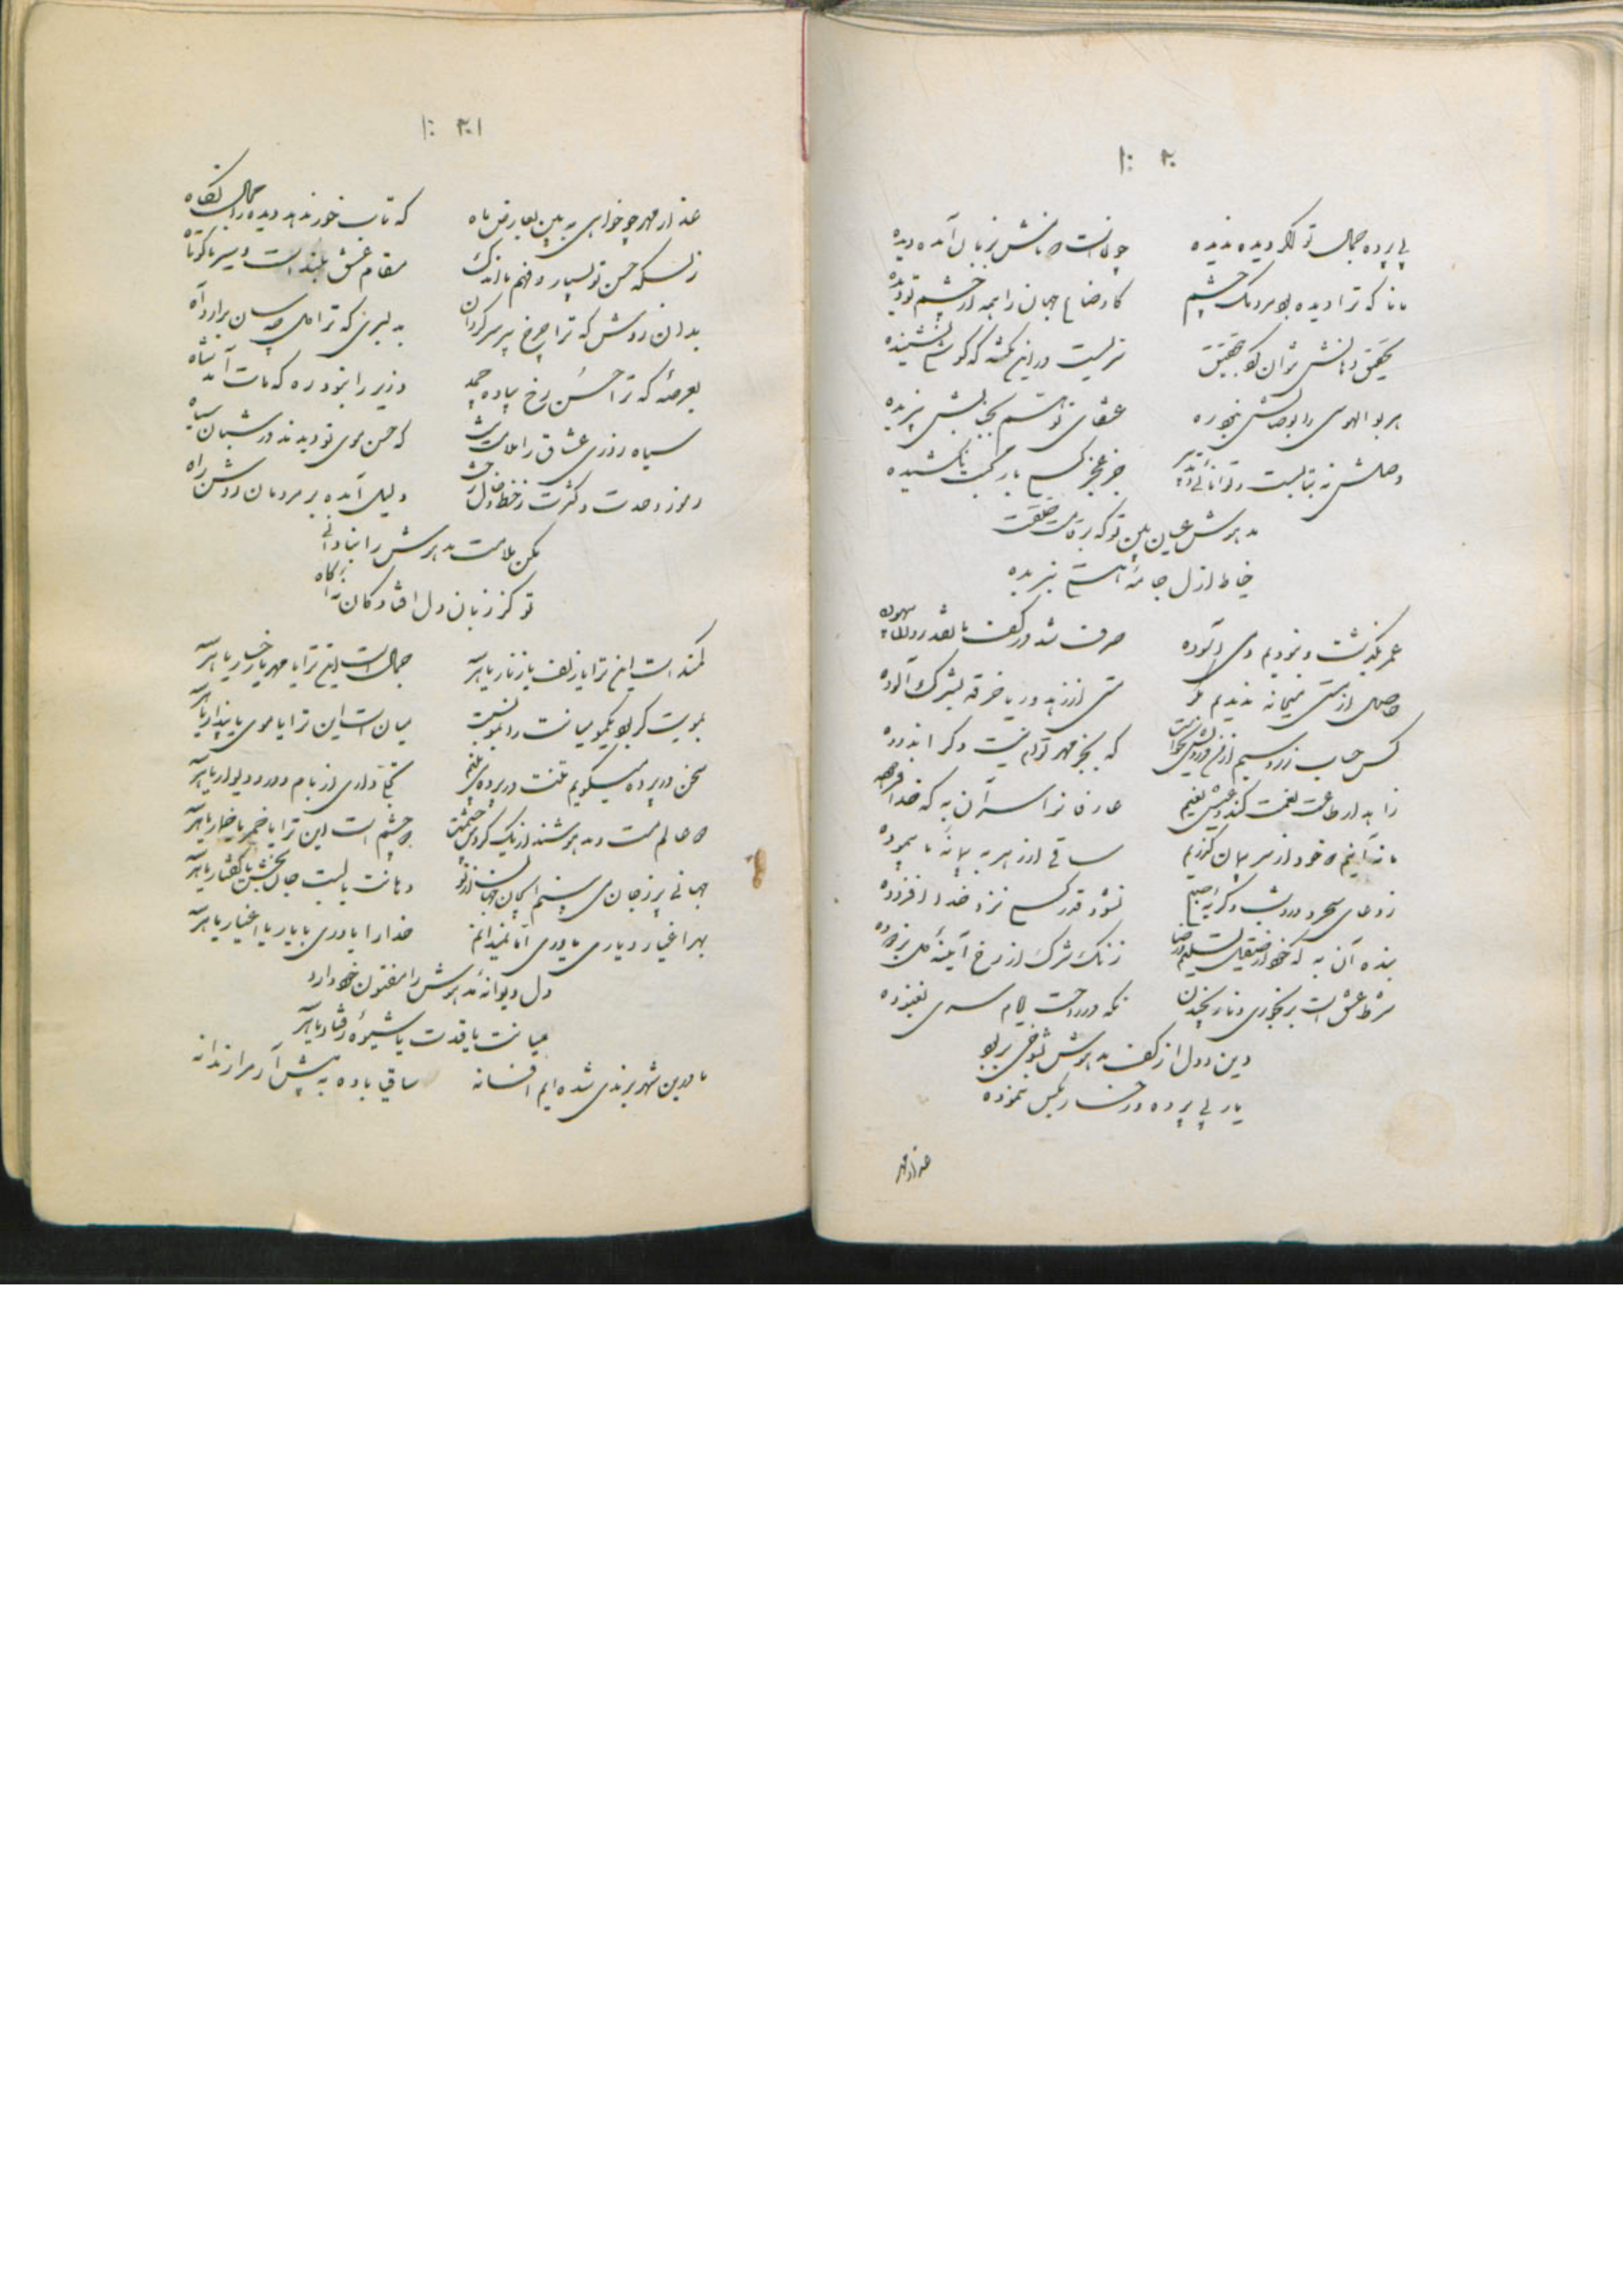 ۲۰
بی پرده جمال تو اگر دیده ندیده چونست که بر زبان آمده دیده
مانا که ترا دیده بود مردمک چشم کاوضاع جهان را همه از چشم تو دیده
تحقیق دهانش نتوان کرد بتحقیق سریست در این نکته که گوشی نشنیده
هر بو الهوسی را بوصالش نبود ره عنقای توهم بجنابش نپریده
وصلش نه بتابست و توانائی و تدبیر جز عجز کسی بار محبت نکشیده
مدهوش عین بین تو که بر قامت خلقت
خیاط ازل جامه نبریده
عمر بگذشت و نبودیم دمی آسوده صرف شد در کف ما نقد روان بیهوده
حاصل از مستی میخانه ندیدیم مگر مستی از زهد و ریا خرقه بشرک آلوده
کس حساب زر و سیم از من درویش نخواست که بجز مهر توام نیست دگر اندوده
زاهد از طاعت نعمت کند و عیش نعیم عارفان را سر آن به که خدا فرموده
ما نه آنیم که خود از سر پیمان گذریم ساقی از هر به پیمانه ما پیموده
ز دعای سحر و ورد شب و گریه صبح نشود قدر کسی نزد خدا افزوده
بنده آن به که خود از صیقل تسلیم و رضا زنگ شرک از رخ آیینه دل بزدوده
شرط عشق است برنجوری و نارنجیدن نکه در راحت ایام سری نغنوده
دین و دل از کف مدهوش بشوخی بربود
یار بی پرده و رخسار بکس ننموده
عذار مهر
۲۰۱
عذار مهر چو خواهی به بین بعارض ماه که تاب خور ندهد دیده را مجال نگاه
ز بسکه حسن تو بسیار و فهم ما اندک مقام عشق بلند است و سیر ما کوتاه
بدان روش که ترا چرخ پیر سرگردان بدلبری که ترا ماه
بعرصه که ترا حسن رخ پیاده چمد وزیر را نبود ره که مات آمد شاه
سیاه روزی عشاق را ملامت نیست که حسن موی تو دیدند در شبان سیاه
رموز وحدت و کثرت ز خط و خال رخت دلیل آمده بر مردمان روشن راه
مکن ملامت مدهوش را بنادانی
تو کز زبان دل افتادگان نه آگاه
کمند است این ترا یا زلف یا زنار یا هر سه جمال است این ترا یا مهر یا رخسار یا هر سه
بمویت گر بود یکمو میانت را بمو نسبت میان است این ترا یا موی یا پندار یا هر سه
سخن در پرده میگویم تنت در پرده می بینم تجلی داری از بام و در و دیوار یا هر سه
دو عالم مست و مدهوشند از یک گردش چشمت دو چشم است این ترا یا خمر یا خمار یا هر سه
جهانی پر ز جان می بینم دهانت یا لبت جان بخش یا گفتار یا هر سه
بهر اغیار و یاری یاوری اما نمیدانم خدا را یاوری با یار یا اغیار یا هر سه
دل دیوانه مدهوش را مفتون خود دارد
میانت یا قدت یا شیوه رفتار یا هر سه
ما در این شهر برندی شده ایم افسانه ساقی باده به پیش آر مرا رندانه